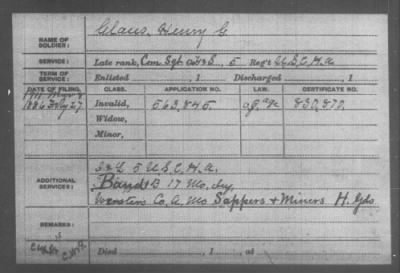 NAME OF SOLDIER: Claus, Henry C
SERVICE: Late rank, Com. Sgt 5 Reg't U.S.C.H.A.
TERM OF SERVICE: Enlisted , 1 Discharged , 1
DATE OF FILING. CLASS. APPLICATION NO. LAW. CERTIFICATE NO.
1886 27 Invalid, 563,845 830,870.
Widow,
Minor,
5 U.S.C.H.A.
ADDITIONAL SERVICES: Band & B 17 Mo. Inf.
Co. A. Mo Sappers + Miners H. Gds
REMARKS:
Died , 1 , at